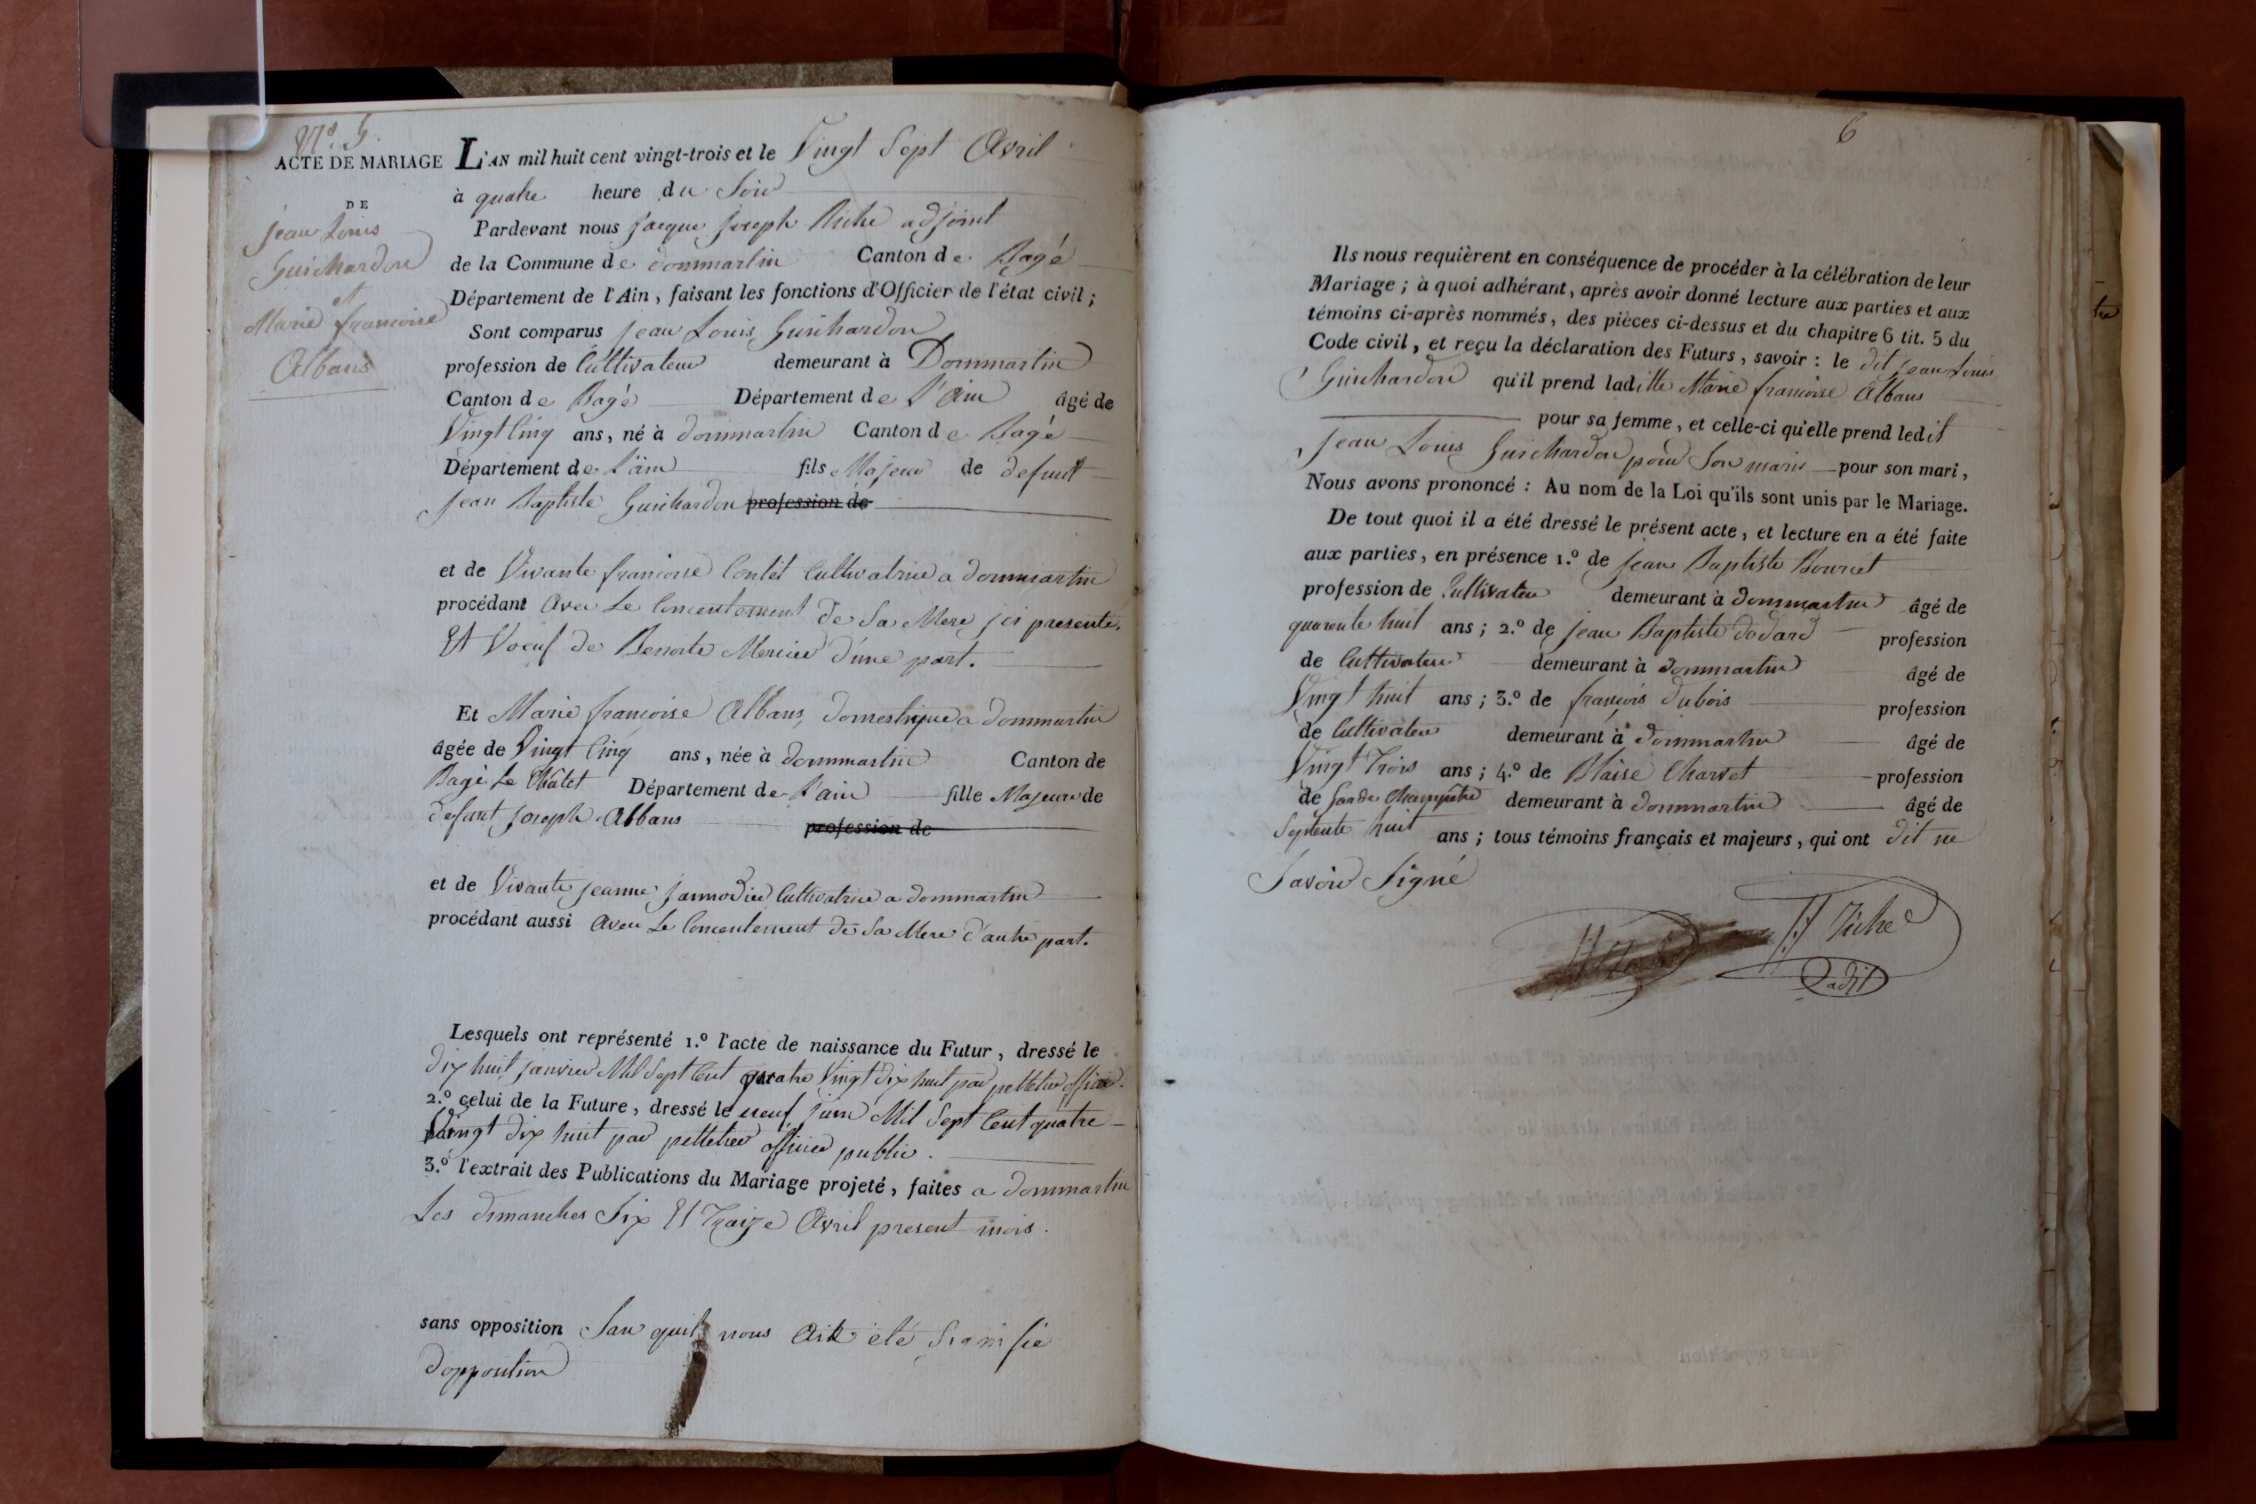 N.° 5.
ACTE DE MARIAGE
DE
jean Louis
Guichardon
et
Marie francoise
Albans
L'AN mil huit cent vingt-trois et le Vingt Sept Avril
à quatre heure du Soir
Pardevant nous jacque joseph Riche adjoint
de la Commune de dommartin Canton de Bagé
Département de l'Ain, faisant les fonctions d'Officier de l'état civil;
Sont comparus jean Louis Guichardon
profession de Cultivateur demeurant à Dommartin
Canton de Bagé Département de l'ain âgé de
Vingt Cinq ans, né à dommartin Canton de Bagé
Département de l'ain fils Majeur de defunt
jean Baptiste Guichardon profession de
et de Vivante francoise Contet Cultivatrice a dommartin
procédant avec Le Concentement de Sa Mere ici presente,
Et Voeuf de Benoite Mercier d'une part.
Et Marie francoise Albans, domestique a dommartin
âgée de Vingt Cinq ans, née à dommartin Canton de
Bagé Le Chatet Département de l'ain fille Majeure de
defunt joseph Albans profession de
et de Vivante jeanne jannodier Cultivatrice a dommartin
procédant aussi avec Le Concentement de Sa Mere d'autre part.
Lesquels ont représenté 1.° l'acte de naissance du Futur, dressé le
dix huit janvier Mil Sept Cent quatre Vingt dix huit par pelletier officier.
2.° celui de la Future, dressé le neuf juin Mil Sept Cent quatre
Vingt dix huit par pelletier officier public.
3.° l'extrait des Publications du Mariage projeté, faites a dommartin
Les dimanches Six Et Traize Avril present mois.
sans opposition San quil nous Ait été Signifie
dopposition
6
Ils nous requièrent en conséquence de procéder à la célébration de leur
Mariage; à quoi adhérant, après avoir donné lecture aux parties et aux
témoins ci-après nommés, des pièces ci-dessus et du chapitre 6 tit. 5 du
Code civil, et reçu la déclaration des Futurs, savoir: le dit jean Louis
Guichardon qu'il prend laditte Marie francoise Albans
pour sa femme, et celle-ci qu'elle prend ledit
jean Louis Guichardon pour Son maris pour son mari,
Nous avons prononcé: Au nom de la Loi qu'ils sont unis par le Mariage.
De tout quoi il a été dressé le présent acte, et lecture en a été faite
aux parties, en présence 1.° de jean Baptiste Bourcet
profession de Cultivateur demeurant à dommartin âgé de
quarente huit ans; 2.° de jean Baptiste dodard profession
de Cultivateur demeurant à dommartin âgé de
Vingt huit ans; 3.° de françois dubois profession
de Cultivateur demeurant à dommartin âgé de
Vingt Trois ans; 4.° de Blaise Charvet profession
de Garde Champêtre demeurant à dommartin âgé de
Septente huit ans; tous témoins français et majeurs, qui ont dit ne
Savoir Signé
J J Riche
adjt